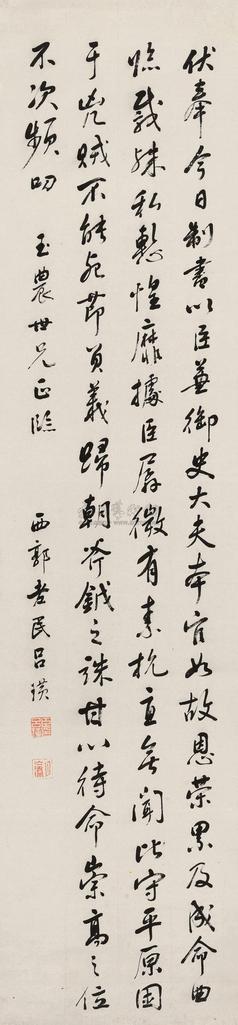 伏奉今日制書以臣兼御史大夫本官如故恩榮累及成命曲
臨戴殊私慙惶靡據臣孱微有素抗直無聞比守平原困
于兇賊不能死節負義歸朝斧鉞之誅甘心待命崇高之位
不次頻叨 玉農世兄正臨 西郭老民呂璜